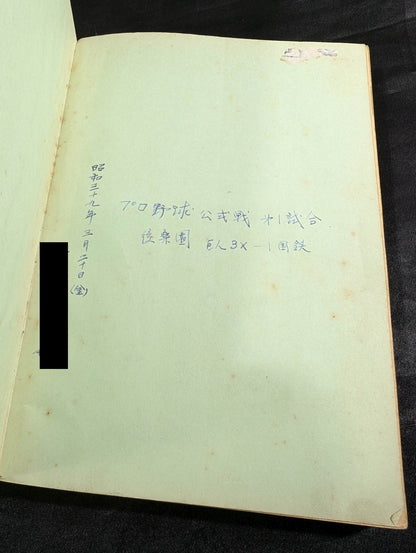 昭和三十九年三月二十日(金)
プロ野球公式戦 オ1試合
后楽園 巨人3X-1国鉄